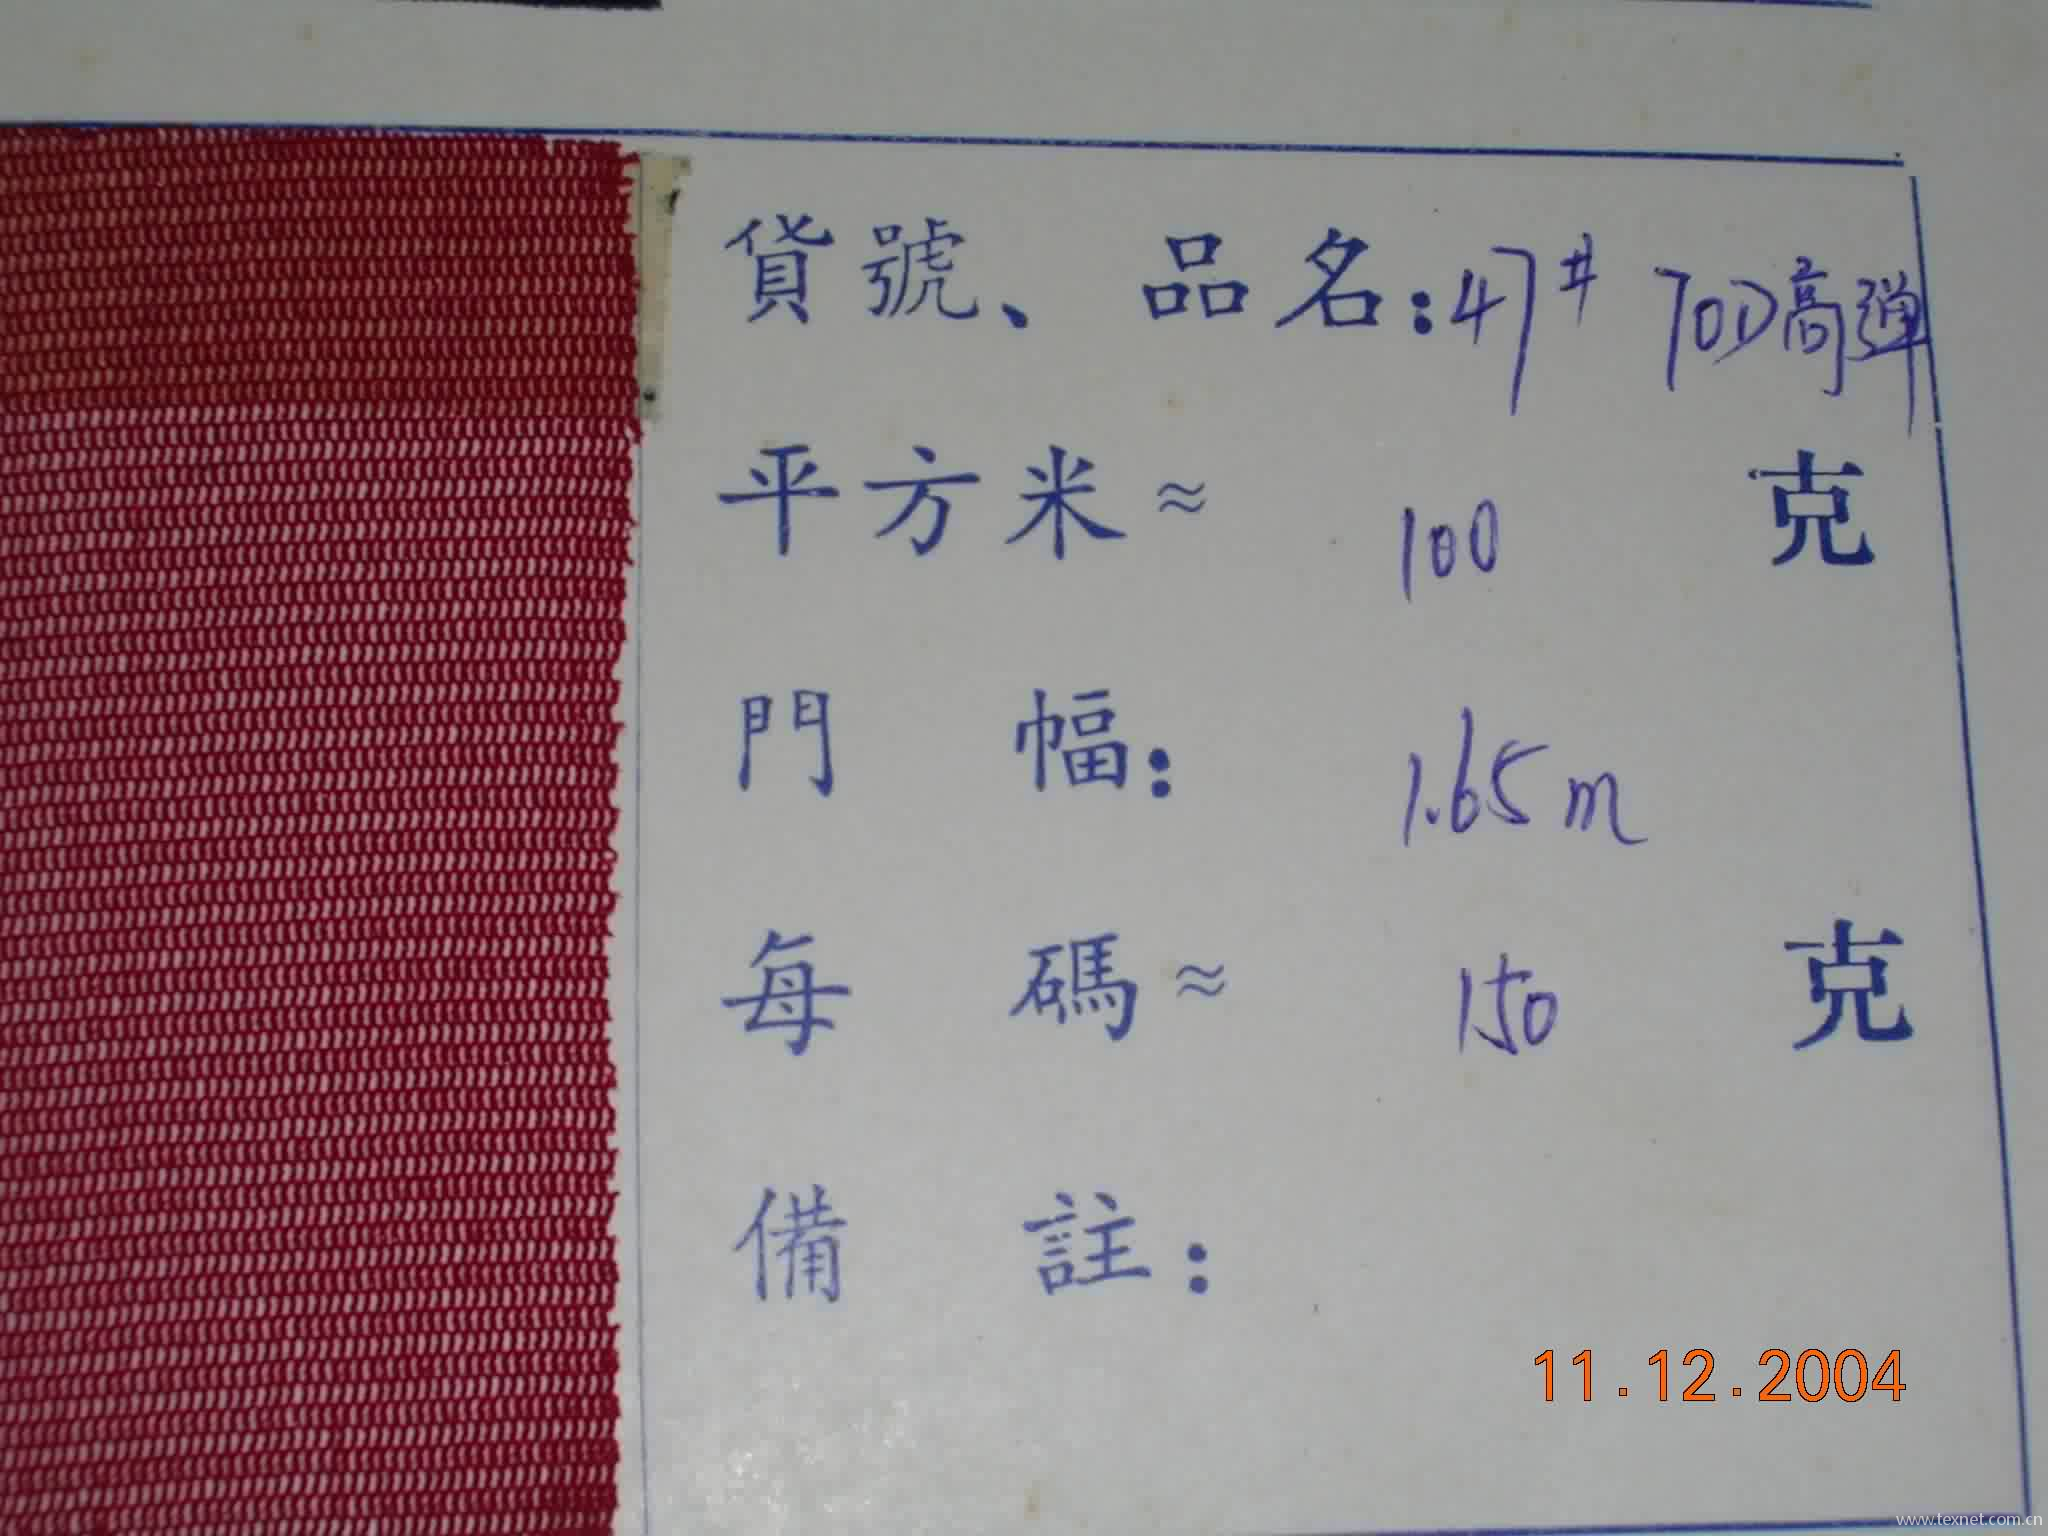 貨號、品名:47# 70D高弹
平方米≈ 100 克
門幅: 1.65m
每碼≈ 150 克
備註:
11.12.2004
www.texnet.com.cn